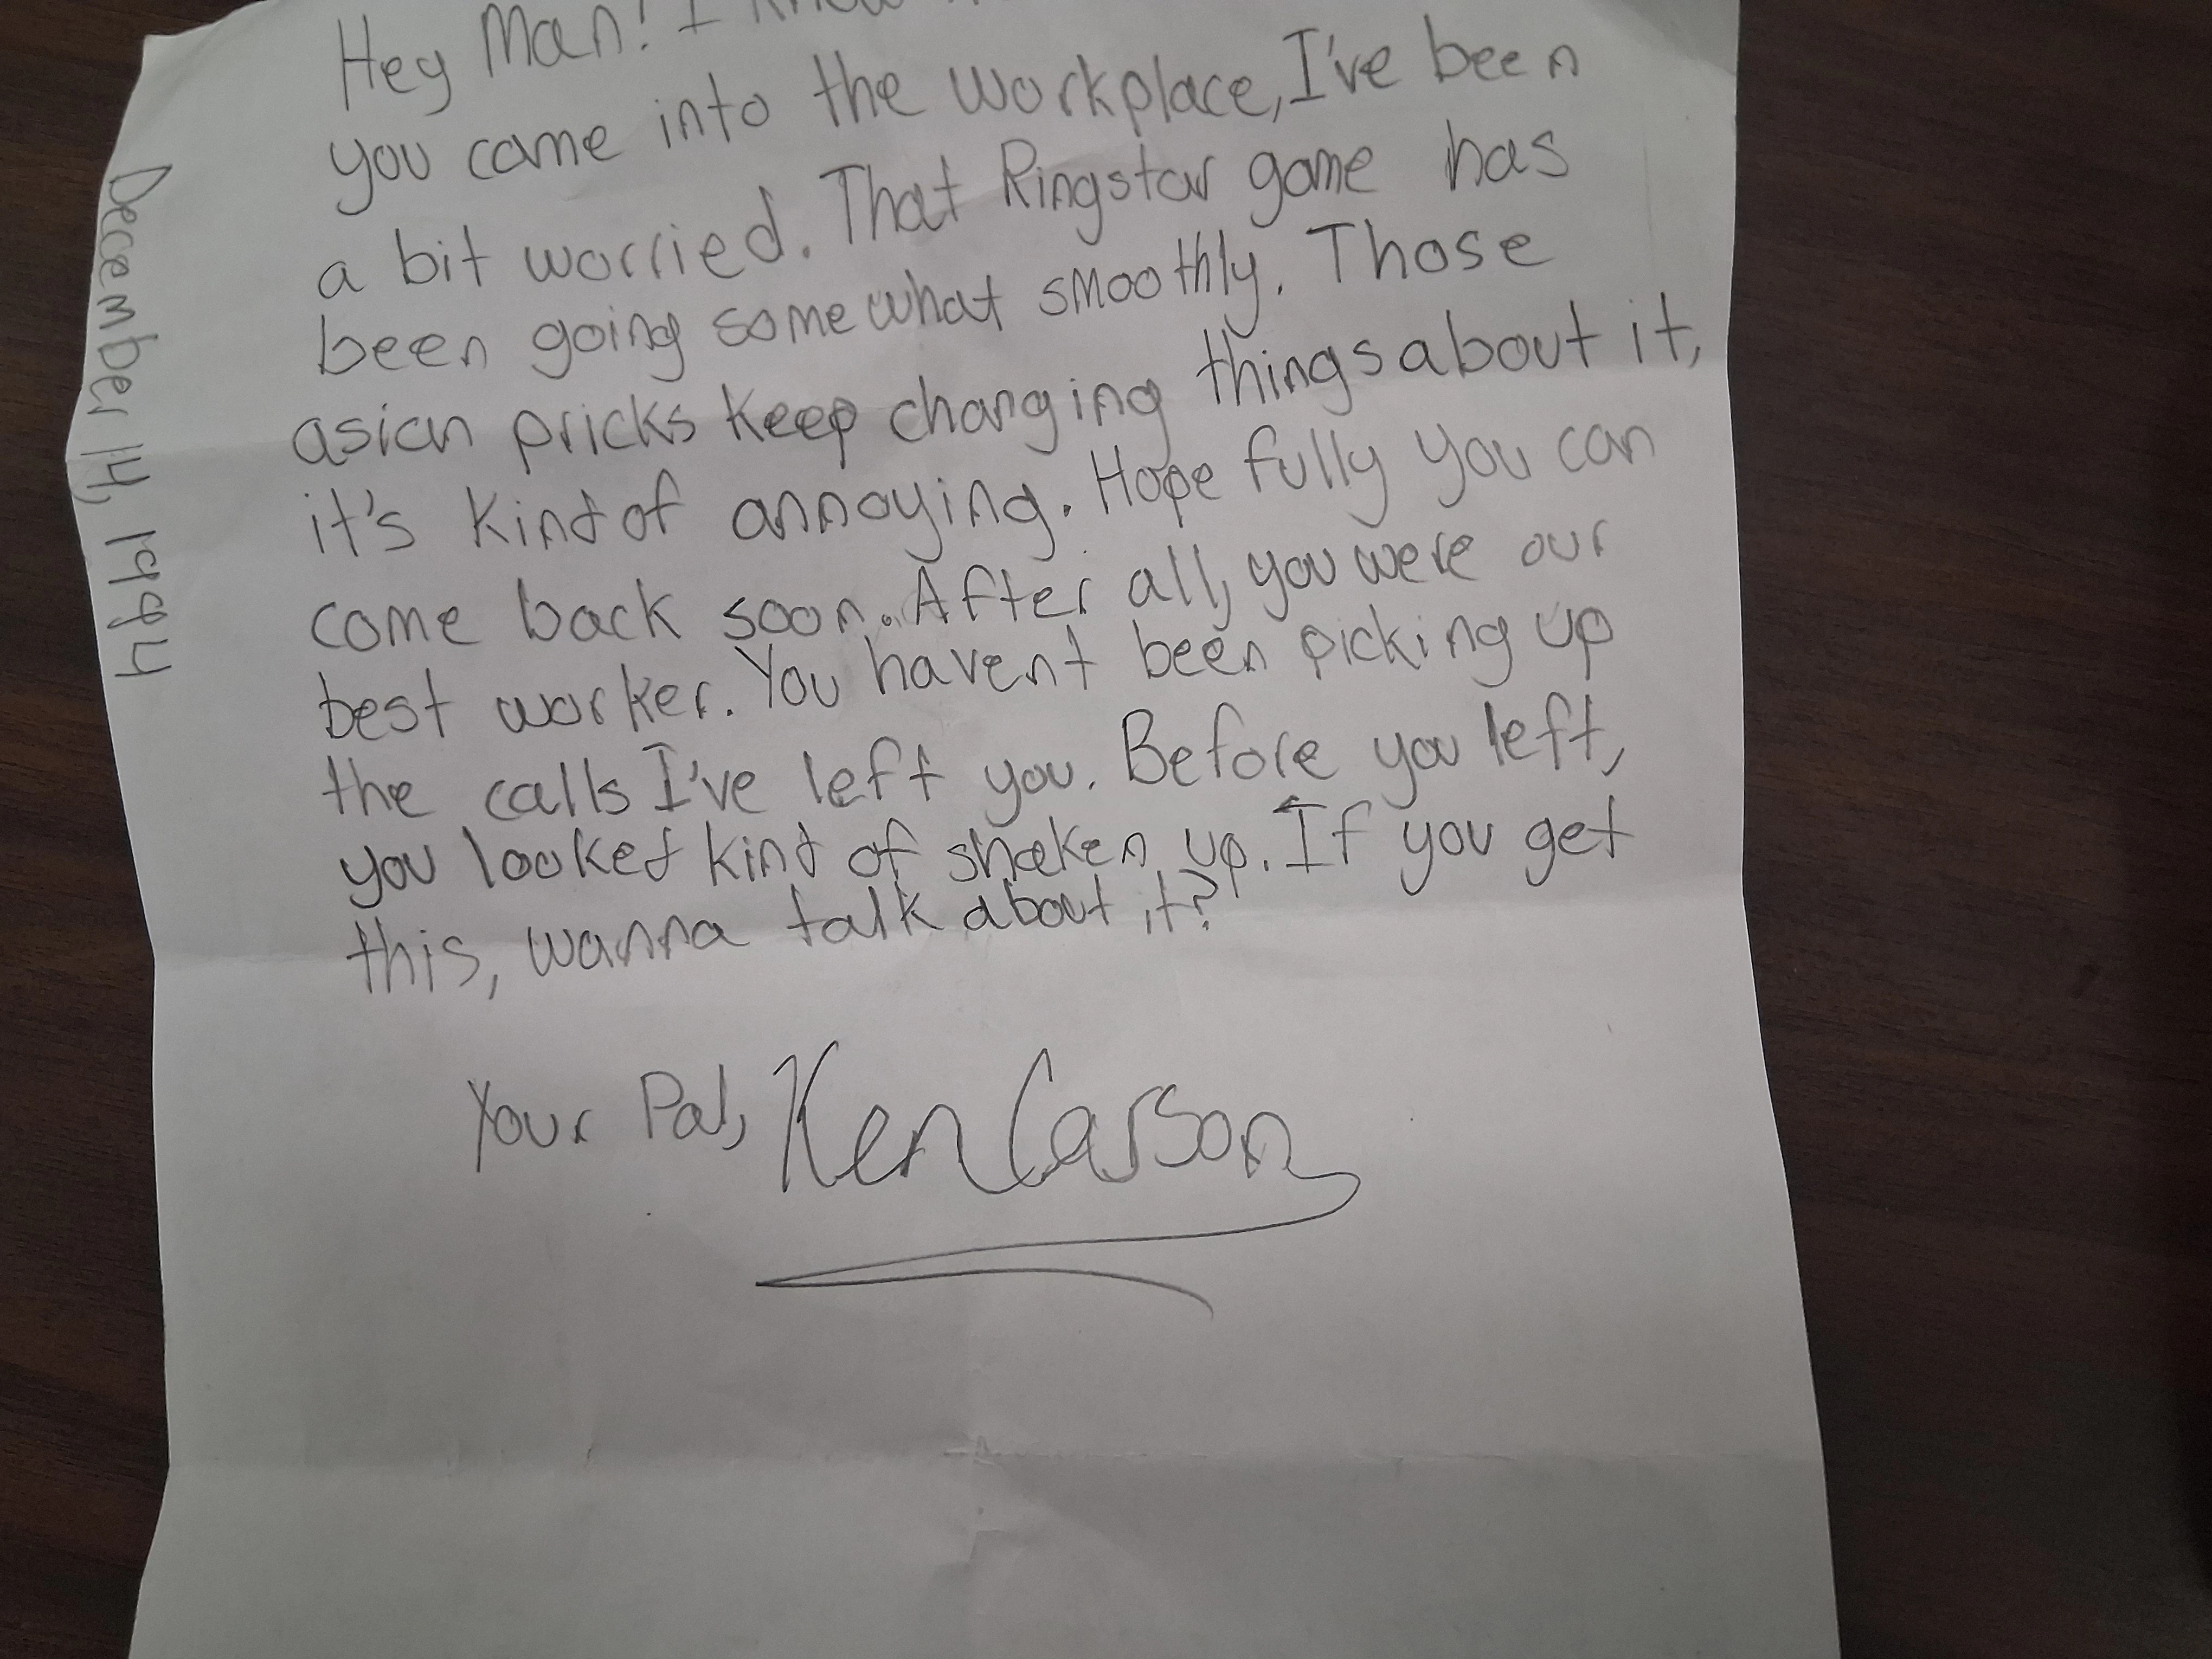 Hey Man! I know
you came into the workplace, I've been
a bit worried. That Ringstar game has
been going somewhat smoothly. Those
asian pricks keep changing things about it,
it's kind of annoying. Hopefully you can
come back soon. After all, you were our
best worker. You havent been picking up
the calls I've left you. Before you left,
you looked kind of shaken up. If you get
this, wanna talk about it?
Your Pal, Ken Carson
December 14, 1994